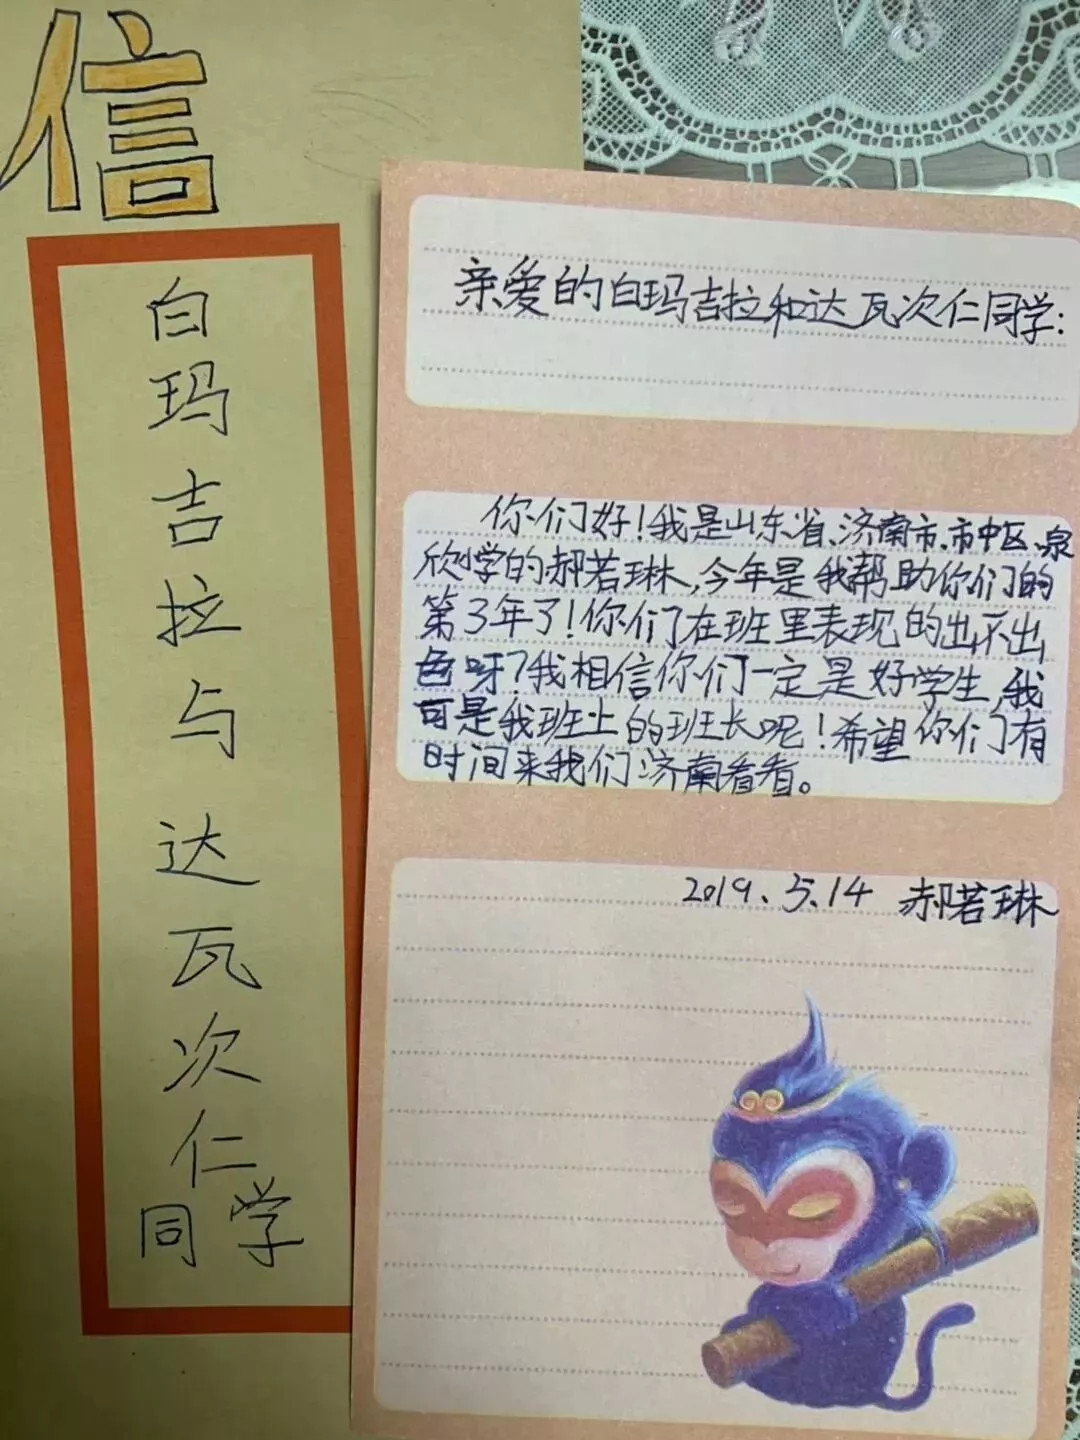 信
白玛吉拉与达瓦次仁
同学
亲爱的白玛吉拉和达瓦次仁同学:
你们好!我是山东省、济南市、市中区、泉
欣小学的郝若琳,今年是我帮助你们的
第3年了!你们在班里表现的出不出
色呀?我相信你们一定是好学生,我
可是我班上的班长呢!希望你们有
时间来我们济南看看。
2019.5.14 郝若琳